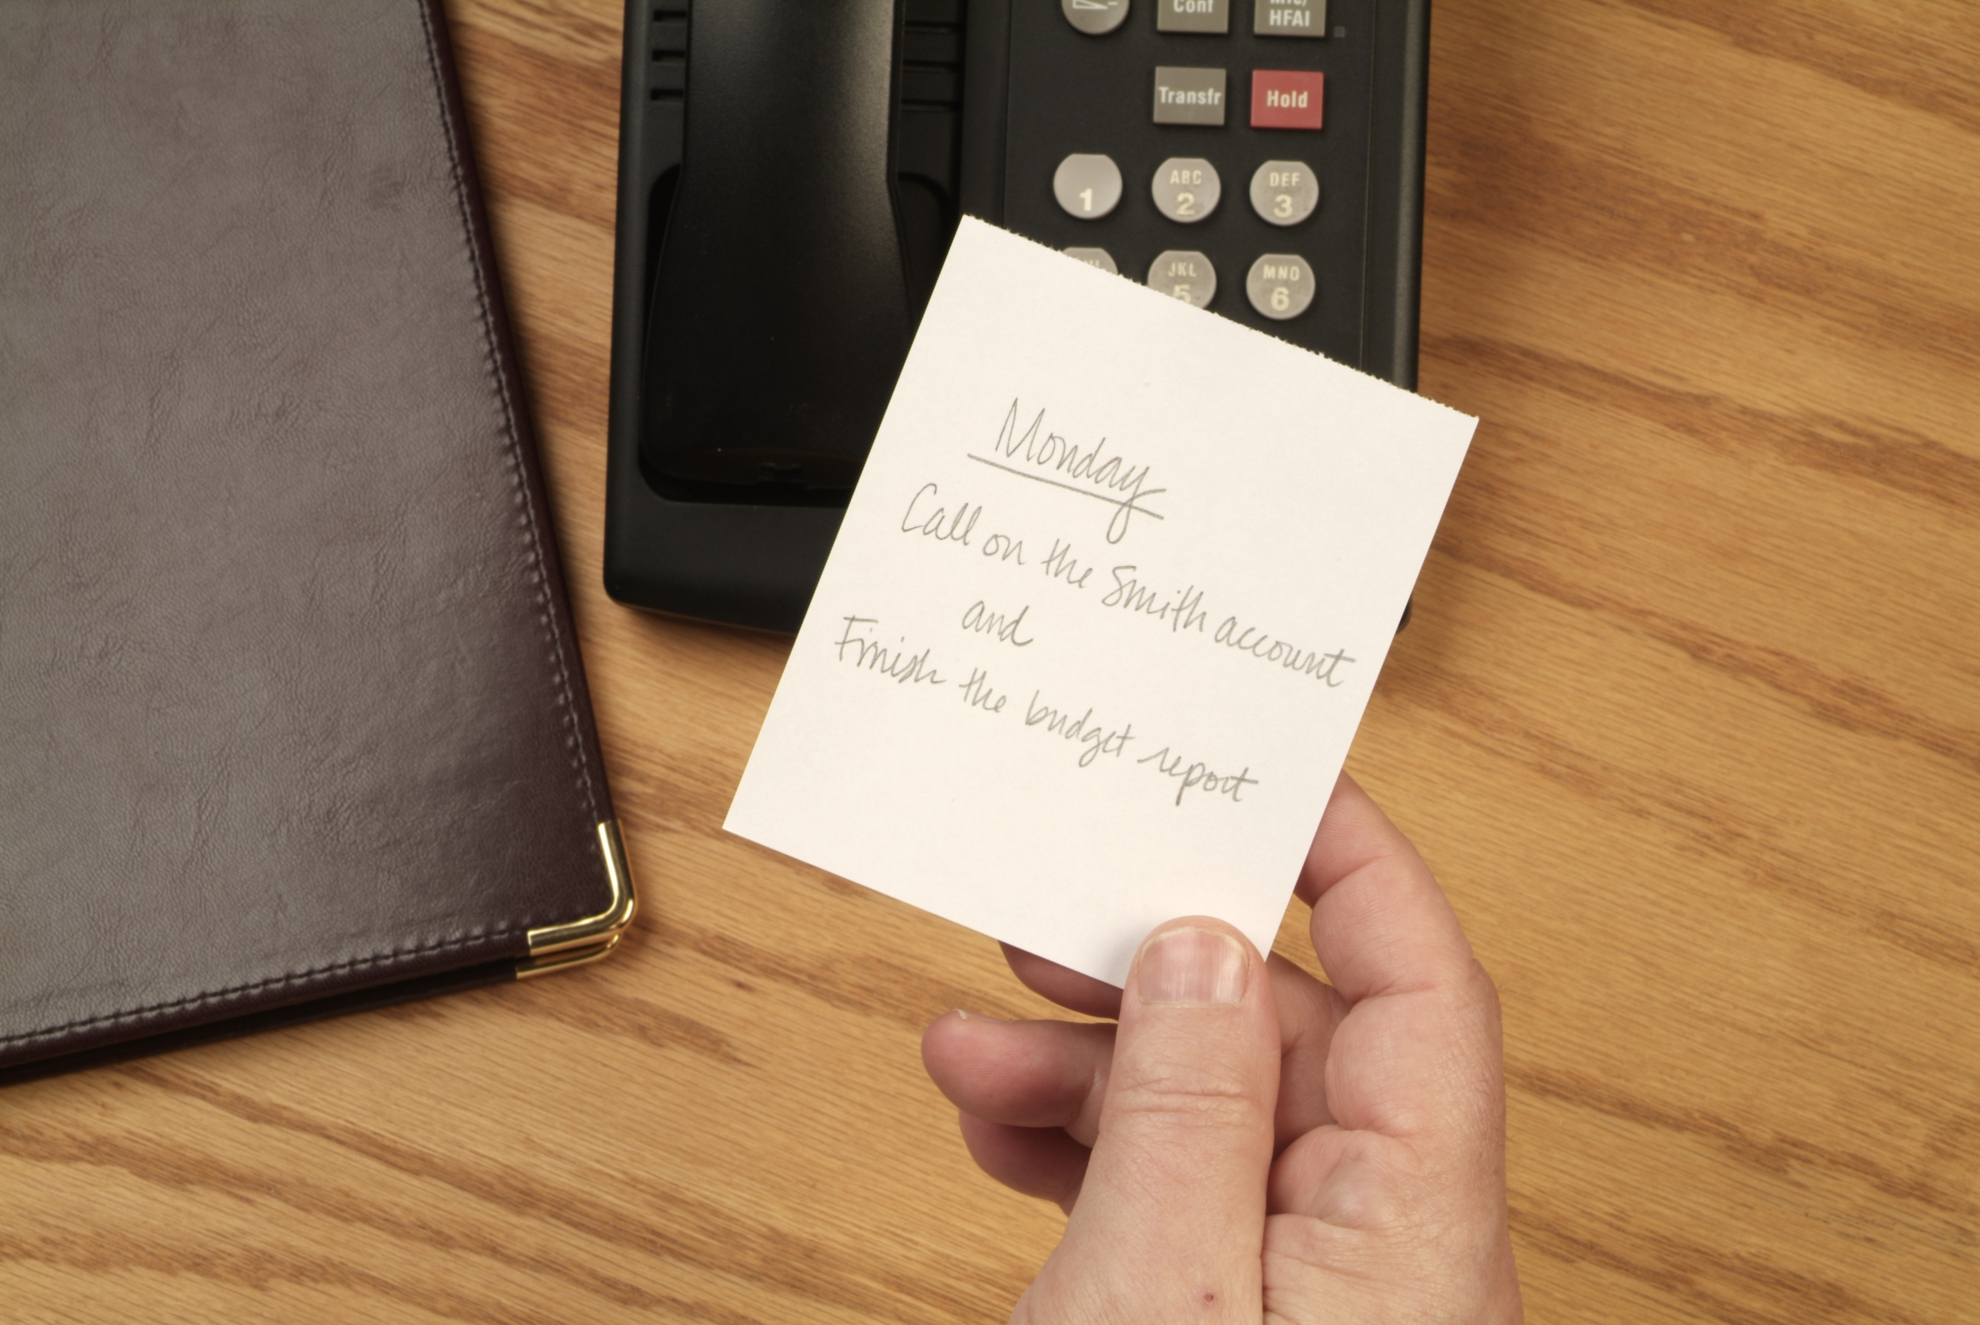 Conf
HFAI
Transfr
Hold
1
ABC
2
DEF
3
JKL
5
MNO
6
Monday
Call on the Smith account
and
Finish the budget report